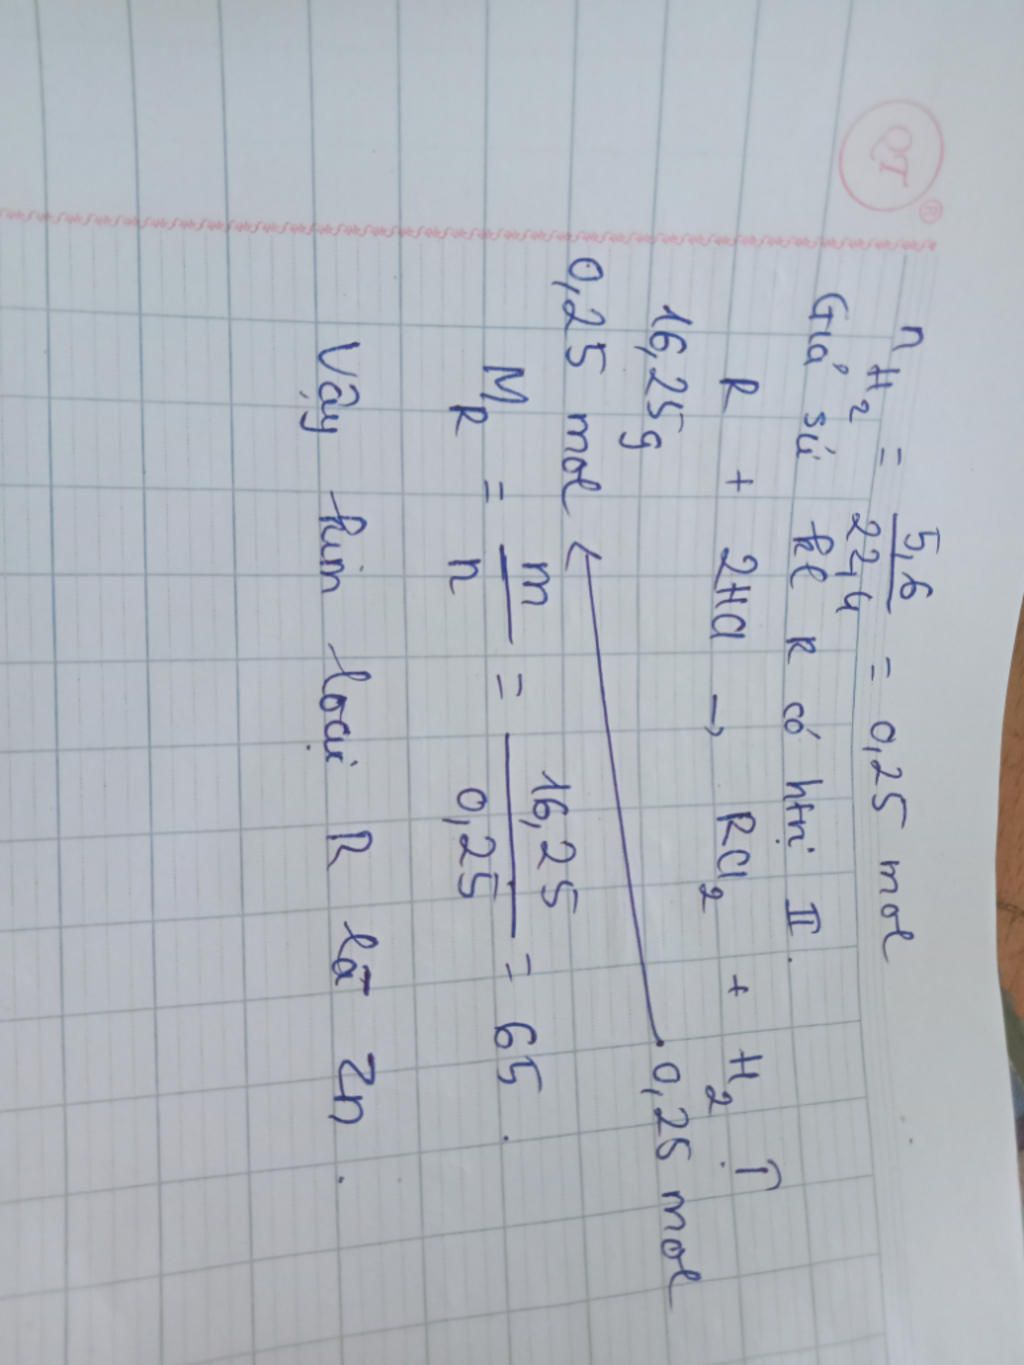 QT ®
n H₂ = 5,6 / 22,4 = 0,25 mol
Giả sử kl R có htrị II.
R + 2HCl → RCl₂ + H₂ ↑
16,25g 0,25 mol
0,25 mol ←
M_R = m / n = 16,25 / 0,25 = 65.
Vậy kim loại R là Zn.